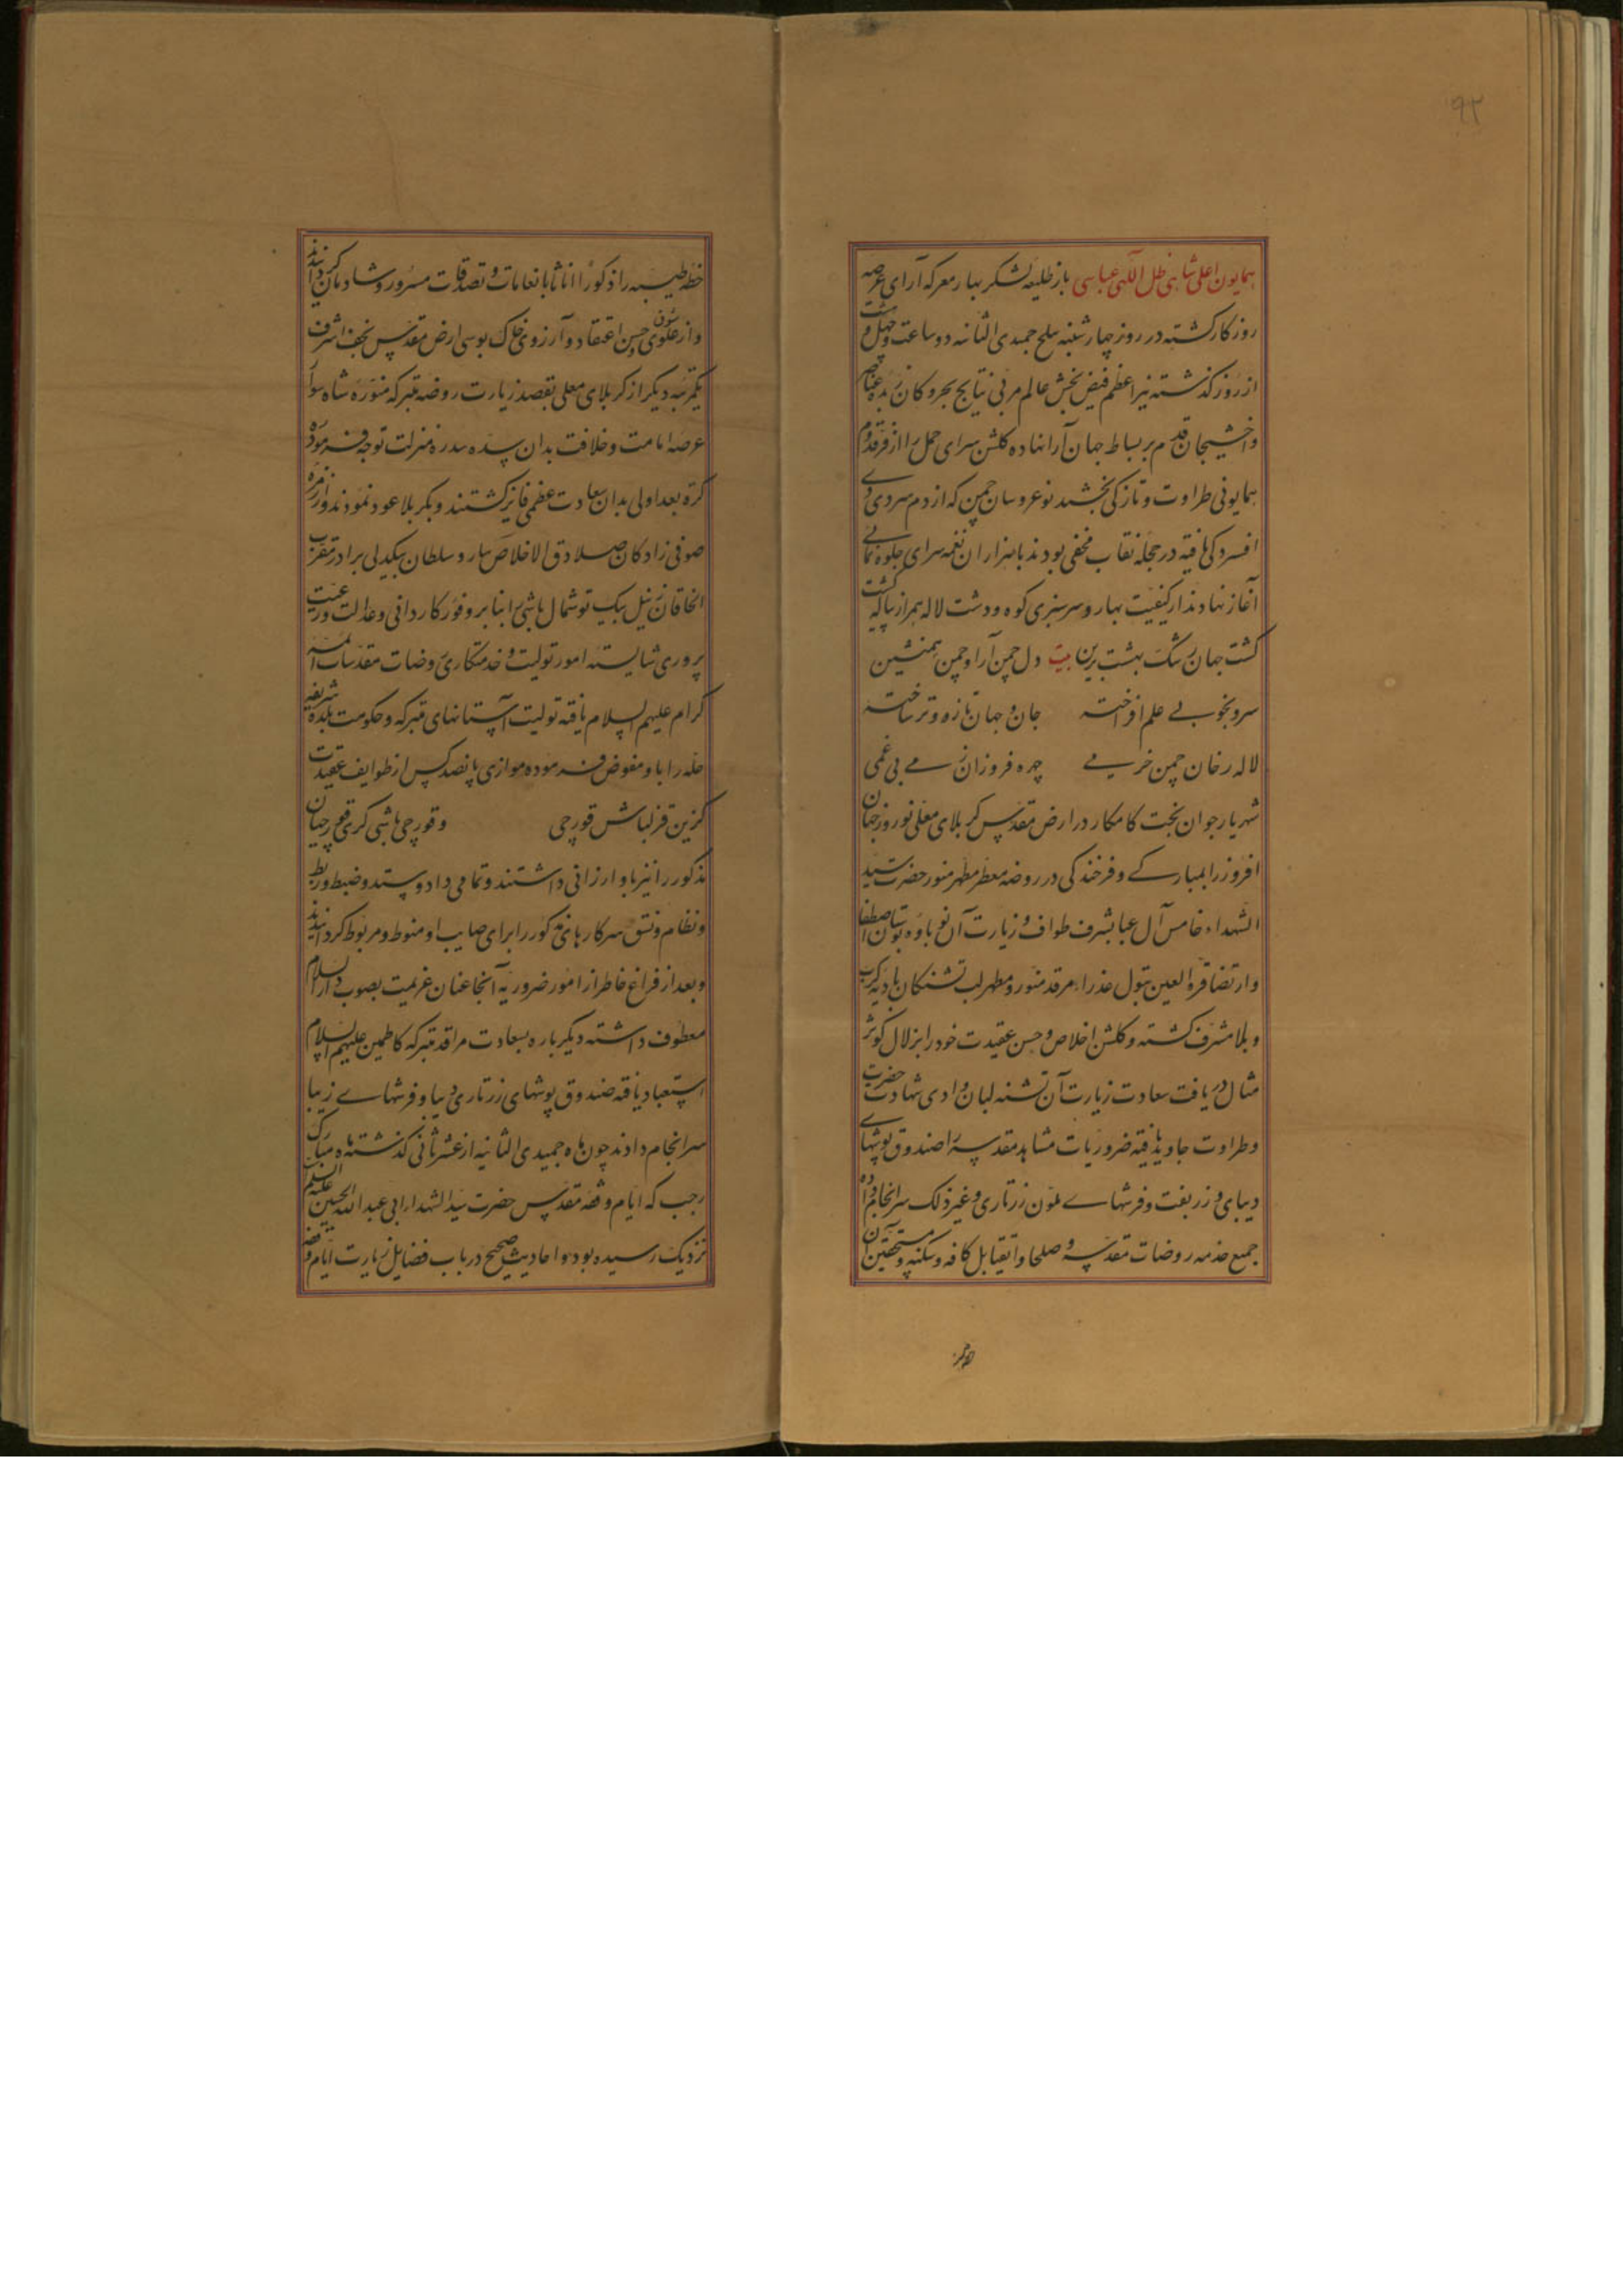 ۹۲
همایون اعلی شاهی ظل اللهی عباسی باز طلیعه لشکر بهار معرکه آرای عرصه
روزکار کشته در روز چهارشنبه سلخ جمیدی الثانیه دو ساعت و چهل و هشت
از روز کذشته نیر اعظم فیض بخش عالم مربی نتایج بحر و کان زبده عناصر
واخشیجان قدم بر بساط جهان آرا نهاده کلشن سرای حمل را از فر قدوم
همایونی طراوت و تازکی بخشید نوعروسان چمن که از دم سردی دی
افسردکی یافته در حجله نقاب مخفی بودند با هزاران نغمه سرای جلوه نمائی
آغاز نهادند از کیفیت بهار و سرسبزی کوه و دشت لاله همراز پیاله کشت
کشت جهان رشک بهشت برین بیت دل چمن آرا و چمن همنشین
سرو بخوبی علم افراخته جان و جهان تازه و تر ساخته
لاله رخان چمن خرمی چهره فروزان ز می بی غمی
شهریار جوان بخت کامکار در ارض مقدس کربلای معلی نوروز جهان
افروز را بمبارکی و فرخندکی در روضه معطر مطهر منور حضرت سید
الشهداء خامس آل عبا بشرف طواف و زیارت آن نوباوه بوستان اصطفا
وارتضا قرة العین بتول عذراء مرقد منور و مطهر لب تشنکان بادیه کرب
و بلا مشرف کشته و کلشن اخلاص و حسن عقیدت خود را بزلال کوثر
مثال دریافت سعادت زیارت آن تشنه لبان وادی شهادت حضرت
وطراوت جاوید یافته ضروریات مشاهد مقدسه را صندوق پوشهای
دیبای و زربفت و فرشهای ملون زرتاری و غیر ذلک سرانجام داده
جمیع خدمه روضات مقدسه و صلحا و اتقیا بل کافه و سکنه و مستحقین آن
خطه طیبه را ذکورا اناثا بانعامات و تصدقات مسرور و شادمان کردانیدند
و از علوی شوق و حسن اعتقاد و آرزوی خاک بوسی ارض مقدس نجف اشرف
یکمرتبه دیکر از کربلای معلی بقصد زیارت روضه متبرکه منوره شاه سوار
عرصه امامت و خلافت بدان سده سدره منزلت توجه فرموده
کرة بعد اولی بدان سعادت عظمی فایز کشتند و بکربلا عود نمودند و از زمره
صوفی زادکان صادق الاخلاص سارو سلطان بیکدلی برادر مقرب
الخاقان زینل بیک توشمال باشی را بنابر وفور کاردانی و عدالت و رعیت
پروری شایسته امور تولیت و خدمتکاری روضات مقدسات ائمه
کرام علیهم السلام یافته تولیت آستانهای متبرکه و حکومت بلده شریفه
حله را باو مفوض فرموده موازی پانصد کس از طوایف عقیدت
کزین قزلباش قورچی و قورچی باشی کری قورچیان
مذکور را نیز باو ارزانی داشتند و تمامی داد و ستد و ضبط و ربط
و نظام و نسق سرکارهای مذکور را برای صایب او منوط و مربوط کردانیدند
و بعد از فراغ خاطر از امور ضروریه آنجا عنان عزیمت بصوب دار السلام
معطوف داشته دیکرباره بسعادت مراقد متبرکه کاظمین علیهم السلام
استسعاد یافته صندوق پوشهای زرتاری دیبا و فرشهای زیبا
سرانجام دادند چون ماه جمیدی الثانیه از عشر ثانی کذشته ماه مبارک
رجب که ایام وقفه مقدس حضرت سید الشهداء ابی عبد الله الحسین علیه السلم
نزدیک رسیده بود و احادیث صحیح در باب فضایل زیارت ایام وقفه